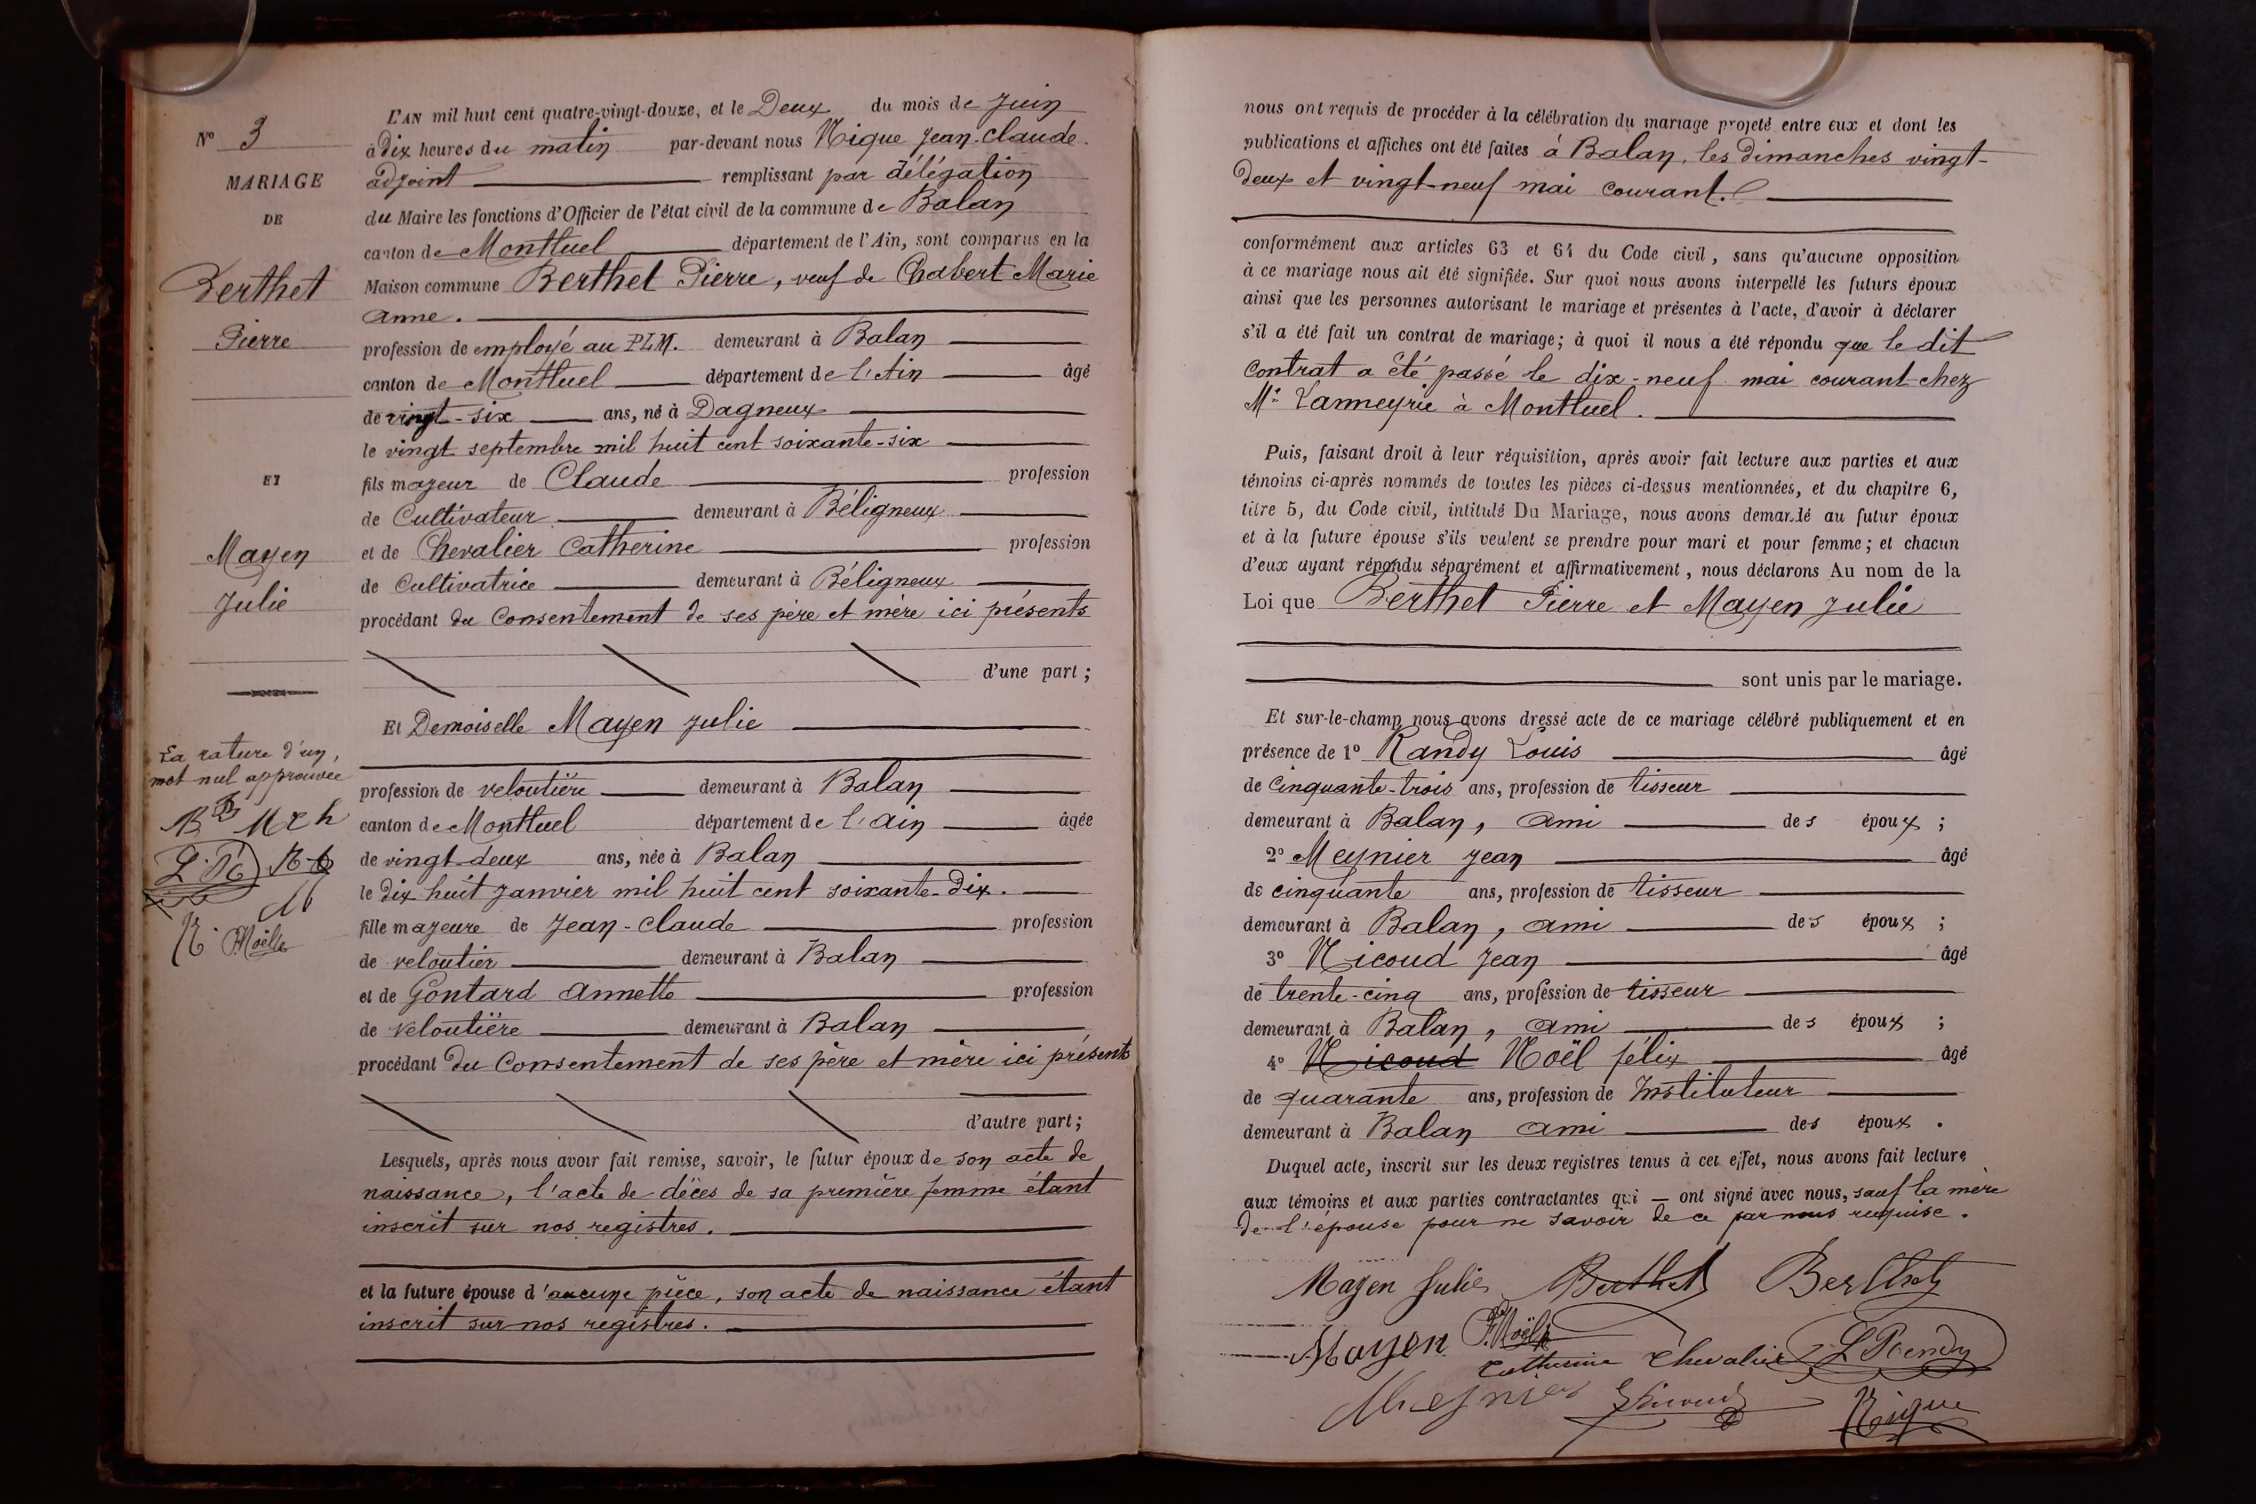 L'AN mil huit cent quatre-vingt-douze, et le Deux du mois de Juin
à Dix heures du matin par-devant nous Nique Jean-Claude.
adjoint remplissant par délégation
du Maire les fonctions d'Officier de l'état civil de la commune de Balan
canton de Montluel département de l'Ain, sont comparus en la
Maison commune Berthet Pierre, veuf de Chabert Marie
Anne.
profession de employé au PLM. demeurant à Balan
canton de Montluel département de l'Ain âgé
de vingt-six ans, né à Dagneux
le vingt septembre mil huit cent soixante-six
fils majeur de Claude profession
de Cultivateur demeurant à Béligneux
et de Chevalier Catherine profession
de Cultivatrice demeurant à Béligneux
procédant du Consentement de ses père et mère ici présents
d'une part ;
Et Demoiselle Mayen Julie
profession de veloutière demeurant à Balan
canton de Montluel département de l'Ain âgée
de vingt-deux ans, née à Balan
le Dix huit Janvier mil huit cent soixante-Dix.
fille majeure de Jean-Claude profession
de veloutier demeurant à Balan
et de Gontard Annette profession
de veloutière demeurant à Balan
procédant du Consentement de ses père et mère ici présents
d'autre part ;
Lesquels, après nous avoir fait remise, savoir, le futur époux de son acte de
naissance, l'acte de décès de sa première femme étant
inscrit sur nos registres.
et la future épouse d'aucune pièce, son acte de naissance étant
inscrit sur nos registres.
N° 3
MARIAGE
DE
Berthet
Pierre
ET
Mayen
Julie
La rature d'un
mot nul approuvée
B M Ch
L. R
N. F. Noël
nous ont requis de procéder à la célébration du mariage projeté entre eux et dont les
publications et affiches ont été faites à Balan, les dimanches vingt-
deux et vingt-neuf mai courant.
conformément aux articles 63 et 64 du Code civil, sans qu'aucune opposition
à ce mariage nous ait été signifiée. Sur quoi nous avons interpellé les futurs époux
ainsi que les personnes autorisant le mariage et présentes à l'acte, d'avoir à déclarer
s'il a été fait un contrat de mariage ; à quoi il nous a été répondu que le dit
Contrat a été passé le dix-neuf mai courant chez
Me Lanneyrie à Montluel.
Puis, faisant droit à leur réquisition, après avoir fait lecture aux parties et aux
témoins ci-après nommés de toutes les pièces ci-dessus mentionnées, et du chapitre 6,
titre 5, du Code civil, intitulé Du Mariage, nous avons demandé au futur époux
et à la future épouse s'ils veulent se prendre pour mari et pour femme ; et chacun
d'eux ayant répondu séparément et affirmativement, nous déclarons Au nom de la
Loi que Berthet Pierre et Mayen Julie
sont unis par le mariage.
Et sur-le-champ nous avons dressé acte de ce mariage célébré publiquement et en
présence de 1° Randy Louis âgé
de Cinquante-trois ans, profession de tisseur
demeurant à Balan, ami des époux ;
2° Meynier Jean âgé
de cinquante ans, profession de tisseur
demeurant à Balan, ami des époux ;
3° Nicoud Jean âgé
de trente-cinq ans, profession de tisseur
demeurant à Balan, ami des époux ;
4° Nicoud Noël félix âgé
de quarante ans, profession de Instituteur
demeurant à Balan ami des époux.
Duquel acte, inscrit sur les deux registres tenus à cet effet, nous avons fait lecture
aux témoins et aux parties contractantes qui — ont signé avec nous, sauf la mère
de l'épouse pour ne savoir de ce par nous requise.
Mayen Julie Berthet Berthet
Mayen F. Noël
Catherine Chevalier L Rendy
Meynier Nicoud Nique